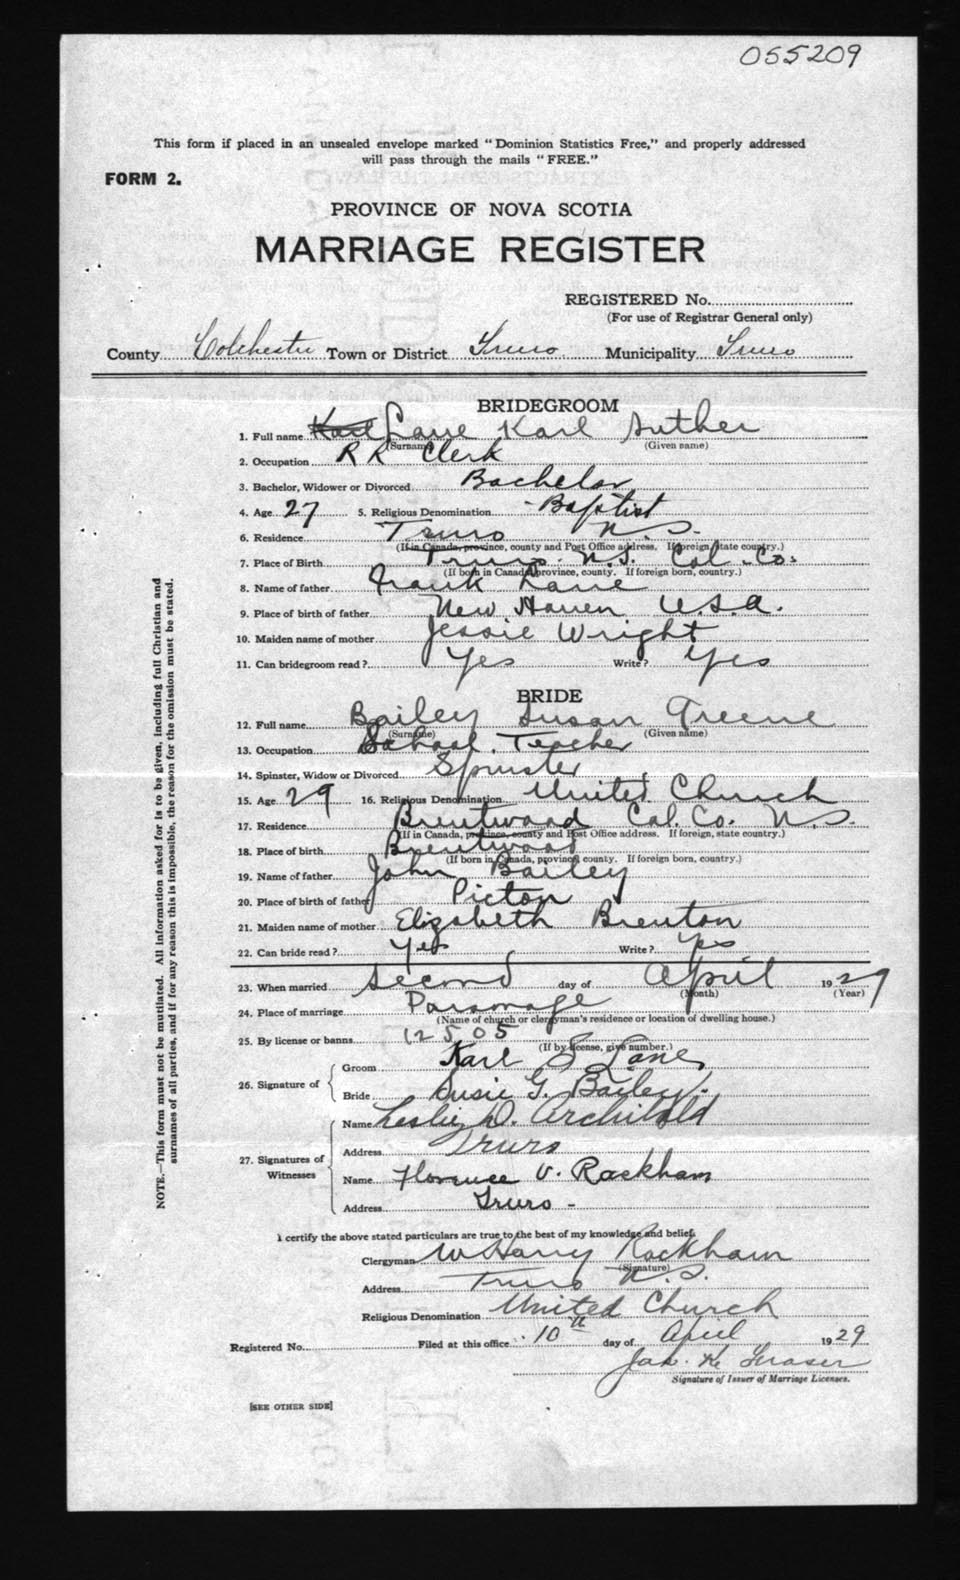 055209
This form if placed in an unsealed envelope marked "Dominion Statistics Free," and properly addressed
will pass through the mails "FREE."
FORM 2.
PROVINCE OF NOVA SCOTIA
MARRIAGE REGISTER
REGISTERED No.
(For use of Registrar General only)
County Colchester Town or District Truro Municipality Truro
BRIDEGROOM
1. Full name Karl Lane Karl Suther
(Surname) (Given name)
2. Occupation R R Clerk
3. Bachelor, Widower or Divorced Bachelor
4. Age 27 5. Religious Denomination Baptist
6. Residence Truro N.S.
(If in Canada, province, county and Post Office address. If foreign, state country.)
7. Place of Birth Truro N.S. Col. Co.
(If born in Canada, province, county. If foreign born, country.)
8. Name of father Frank Lane
9. Place of birth of father New Haven U.S.A.
10. Maiden name of mother Jessie Wright
11. Can bridegroom read? Yes Write? Yes
BRIDE
12. Full name Bailey Susan Greene
(Surname) (Given name)
13. Occupation School Teacher
14. Spinster, Widow or Divorced Spinster
15. Age 29 16. Religious Denomination United Church
17. Residence Brentwood Col. Co. N.S.
(If in Canada, province, county and Post Office address. If foreign, state country.)
18. Place of birth Brentwood
(If born in Canada, province, county. If foreign born, country.)
19. Name of father John Bailey
20. Place of birth of father Picton
21. Maiden name of mother Elizabeth Brenton
22. Can bride read? Yes Write? Yes
23. When married Second day of April 1929
(Month) (Year)
24. Place of marriage Parsonage
(Name of church or clergyman's residence or location of dwelling house.)
25. By license or banns 12505
(If by license, give number.)
26. Signature of
Groom Karl S Lane
Bride Susie G. Bailey.
27. Signatures of Witnesses
Name Leslie D. Archibald
Address Truro
Name Florence V. Rackham
Address Truro -
I certify the above stated particulars are true to the best of my knowledge and belief.
Clergyman W Harry Rackham
(Signature)
Address Truro N.S.
Religious Denomination United Church
Registered No. Filed at this office 10th day of April 1929
Jas. K. Fraser
Signature of Issuer of Marriage Licenses.
[SEE OTHER SIDE]
NOTE.—This form must not be mutilated. All information asked for is to be given, including full Christian and
surnames of all parties, and if for any reason this is impossible, the reason for the omission must be stated.